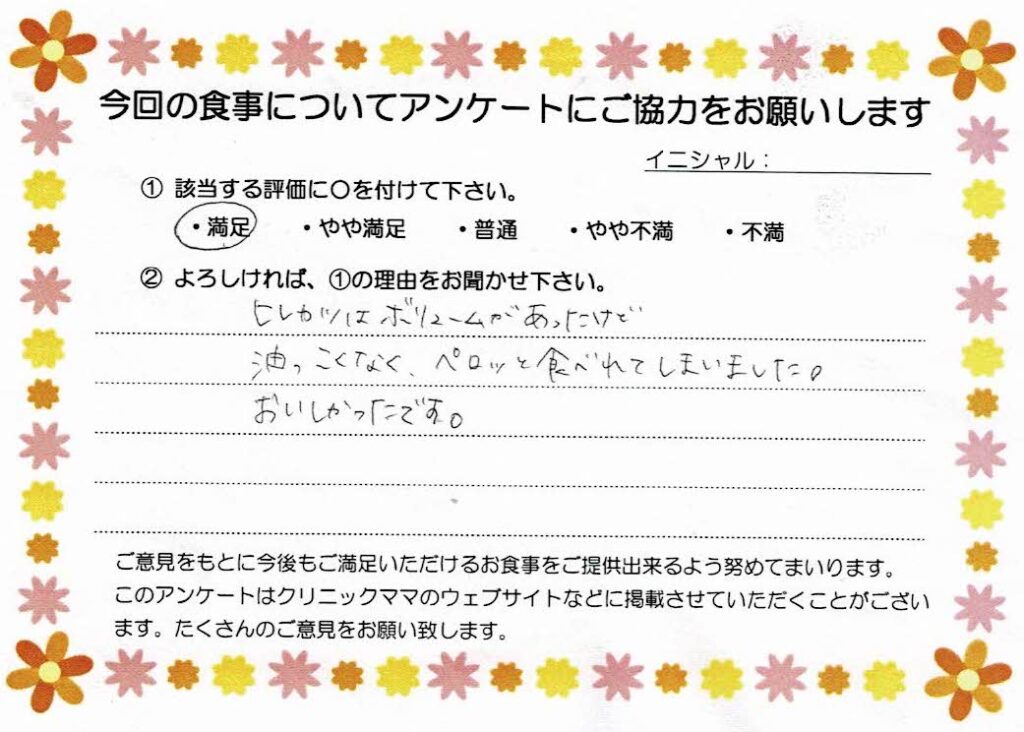 今回の食事についてアンケートにご協力をお願いします
イニシャル：
① 該当する評価に〇を付けて下さい。
・満足 ・やや満足 ・普通 ・やや不満 ・不満
② よろしければ、①の理由をお聞かせ下さい。
ヒレカツはボリュームがあったけど
油っこくなく、ペロッと食べれてしまいました。
おいしかったです。
ご意見をもとに今後もご満足いただけるお食事をご提供出来るよう努めてまいります。
このアンケートはクリニックママのウェブサイトなどに掲載させていただくことがござい
ます。たくさんのご意見をお願い致します。